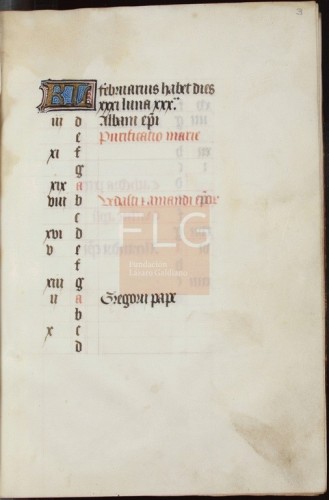 3
KL februarius habet dies
xxxi luna xxx.
iii d Albani epi
e Purificatio marie
xi f
g
xix a
viii b Vedasti & amandi epor
c
xvi d
v e
f
xiii g
ii a Gregorii pape
b
x c
d
FLG
Fundación
Lázaro Galdiano